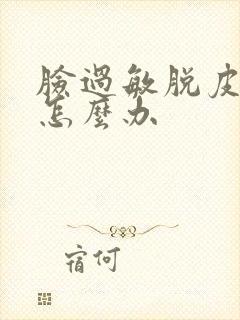 臉過敏脱皮
怎麼办
宿何